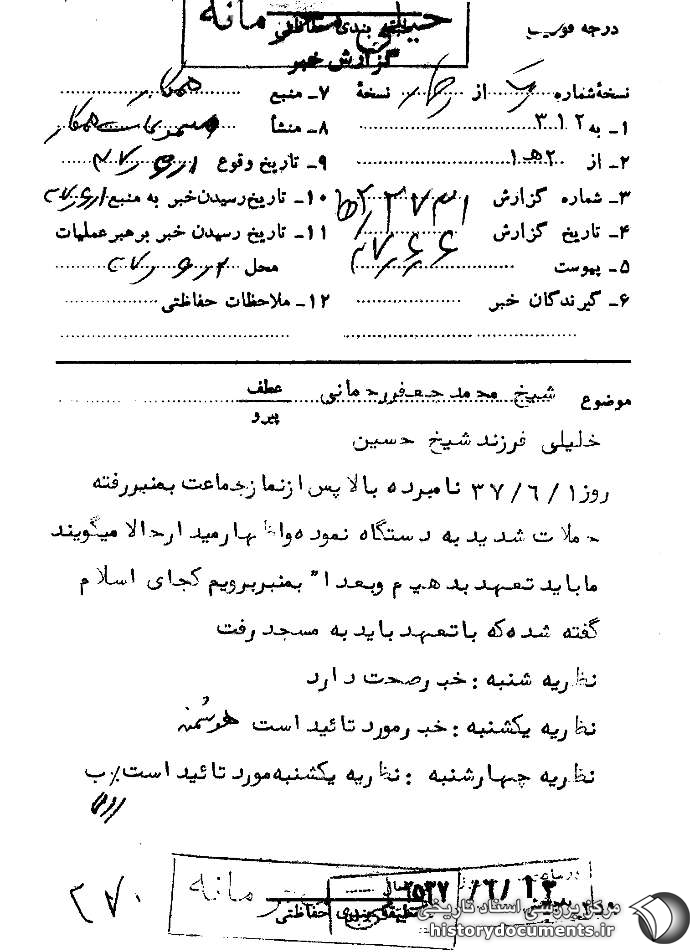 درجه فوریت
خیلی محرمانه
طبقه بندی حفاظتی
گزارش خبر
نسخهٔ شماره از نسخهٔ
۱ـ به ۳۱۲
۲ـ از ۲هـ۱
۳ـ شماره گزارش
۴ـ تاریخ گزارش ۳۷٫۶٫۶
۵ـ پیوست
۶ـ گیرندگان خبر
۷ـ منبع همکار
۸ـ منشأ همکار
۹ـ تاریخ وقوع
۱۰ـ تاریخ رسیدن خبر به منبع
۱۱ـ تاریخ رسیدن خبر برهبر عملیات
محل
۱۲ـ ملاحظات حفاظتی
موضوع شیخ محمد جعفر رحمانی
عطف
پیرو
خلیلی فرزند شیخ حسین
روز ۳۷/۶/۱ نامبرده بالا پس از نماز جماعت بمنبر رفته
حملات شدید به دستگاه نموده و اظهار میدارد حالا میگویند
ما باید تعهد بدهیم و بعدا" بمنبر برویم کجای اسلام
گفته شده که با تعهد باید به مسجد رفت
نظریه شنبه : خبر صحت دارد
نظریه یکشنبه : خبر مورد تائید است هوشمن
نظریه چهارشنبه : نظریه یکشنبه مورد تائید است٪ ب
محرمانه
طبقه بندی حفاظتی
۲۵۳۷/۶/۱۲
۲۷۰
مرکز بررسی اسناد تاریخی
historydocuments.ir